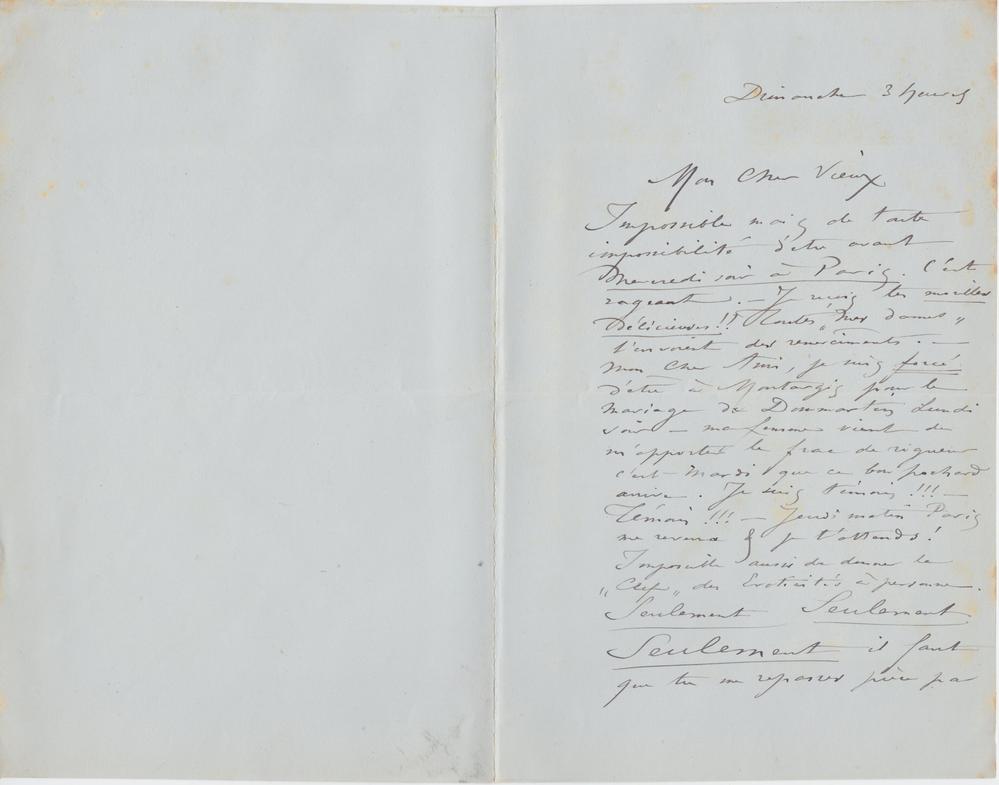 Dimanche 3 heures
Mon Cher Vieux
Impossible mais de toute
impossibilité d'être avant
Mercredi soir à Paris. C'est
rageant. — Je suis les
Délicieuses!! Toutes „mes dames„
t'envoient des remerciments. —
Mon Cher Ami, je suis forcé
d'être à Montargis pour le
mariage de Dommartin Lundi
soir — ma femme vient de
m'apporter le frac de rigueur
c'est Mardi que ce bon pochard
arrive. Je suis témoin!!! —
Témoin!!! — Jeudi matin Paris
me reverra & je t'attends!
Impossible aussi de donner la
„Clef„ des Eroticités à personne.
Seulement Seulement
Seulement il faut
que tu me repasses pièce pa